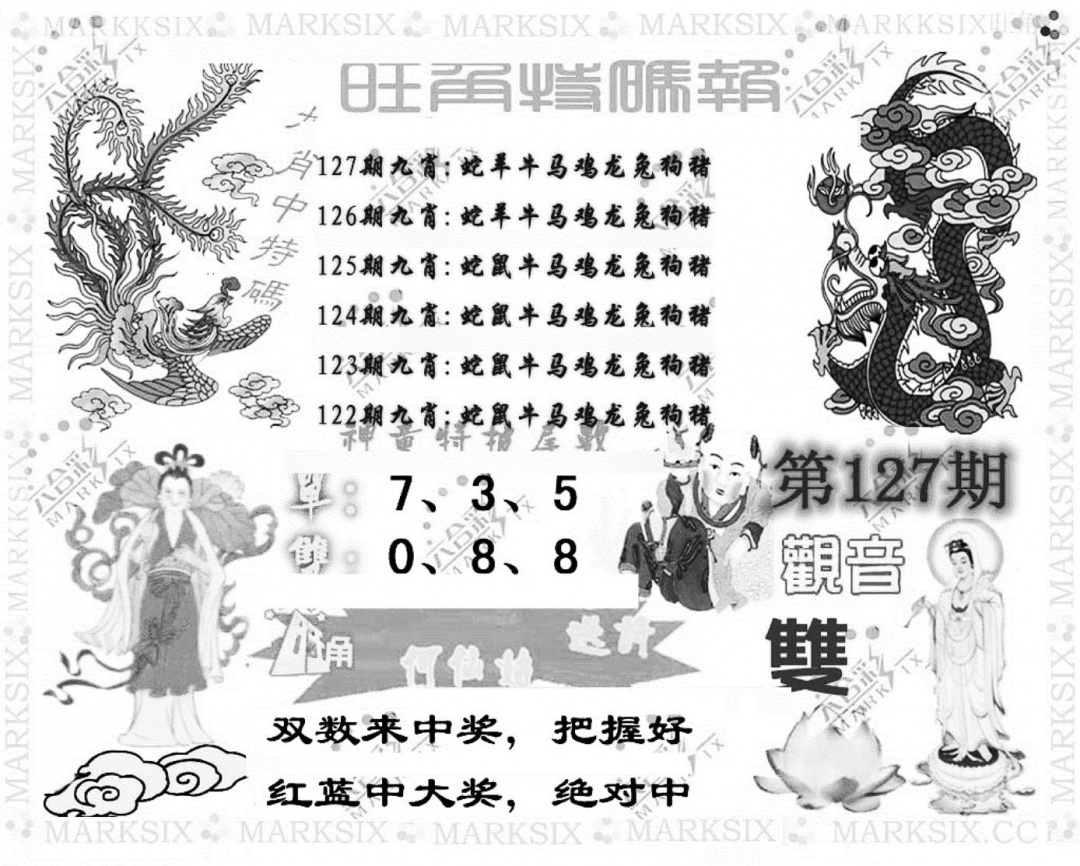 MARKKSIX MARKSIX MARKSIX MARKSIX MARKKSIX
旺角特碼報
九肖中特碼
127期九肖:蛇羊牛马鸡龙兔狗猪
126期九肖:蛇羊牛马鸡龙兔狗猪
125期九肖:蛇鼠牛马鸡龙兔狗猪
124期九肖:蛇鼠牛马鸡龙兔狗猪
123期九肖:蛇鼠牛马鸡龙兔狗猪
122期九肖:蛇鼠牛马鸡龙兔狗猪
第127期
單: 7、3、5
雙: 0、8、8
觀音
雙
何仙姑
双数来中奖，把握好
红蓝中大奖，绝对中
MARKSIX MARKSIX MARKSIX MARKSIX MARKSIX.CC